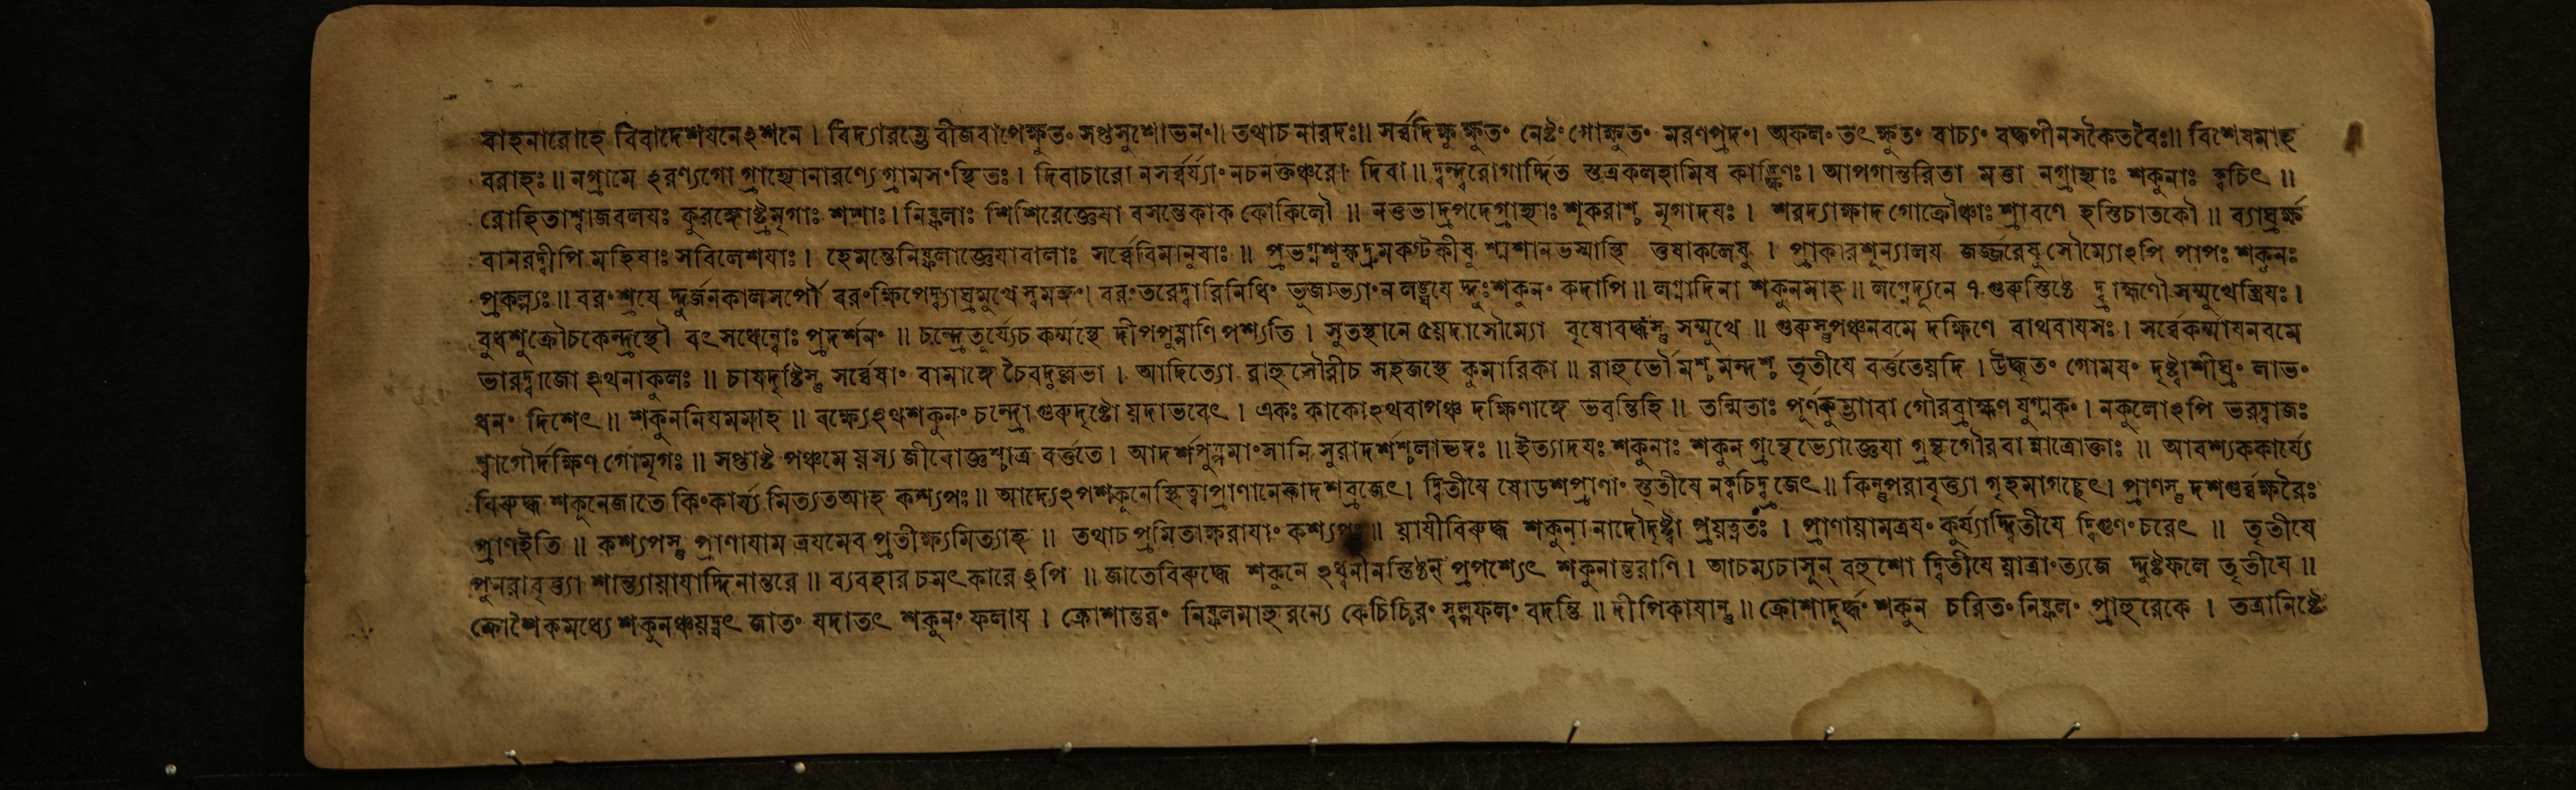 বাহনারোহে বিবাদেশযনেঽশনে । বিদ্যারম্ভে বীজবাপেক্ষুতং সপ্তসুশোভনং॥ তথাচ নারদঃ॥ সর্ব্বদিক্ষু ক্ষুতং নেষ্টং গোক্ষুতং মরণপ্রদং। অফলং তৎ ক্ষুতং বাচ্যং বৃদ্ধপীনসকৈতবৈঃ॥ বিশেষমাহ
বরাহঃ ॥ নগ্রামে ঽরণ্যগো গ্রাহ্যোনারণ্যে গ্রামসংস্থিতঃ । দিবাচারো নসর্ব্বর্য্যাং নচনক্তঞ্চরো দিবা ॥ দ্বন্দ্বরোগার্দ্দিত ত্রস্ত্রকলহামিষ কাঙ্ক্ষিণঃ । আপগান্তরিতা মত্তা নগ্রাহ্যাঃ শকুনাঃ ক্বচিৎ ॥
রোহিতাশ্বাজবলযঃ কুরঙ্গোষ্ট্রমৃগাঃ শশাঃ । নিষ্ফলাঃ শিশিরেজ্ঞেযা বসন্তেকাক কোকিলৌ ॥ নতুভাদ্রপদেগ্রাহ্যাঃ শূকরাশ্চ মৃগাদযঃ । শরদ্যাব্জাদ গোক্রৌঞ্চাঃ শ্রাবণে হস্তিচাতকৌ ॥ ব্যাঘ্রর্ক্ষ
বানরদ্বীপি মহিষাঃ সবিলেশযাঃ । হেমন্তেনিষ্ফলাজ্ঞেযাবালাঃ সর্ব্বেবিমানুষাঃ ॥ প্রভগ্নশুষ্কদ্রুমকণ্টকীষু শ্মশানভস্মাস্থি তুষাকলেষু । প্রাকারশূন্যালয জর্জ্জরেষু সৌম্যোঽপি পাপঃ শকুনঃ
প্রকল্প্যঃ ॥ বরং শ্রযে দ্দুর্জনকালসর্পৌ বরং ক্ষিপেদ্ব্যাঘ্রমুখে স্বমঙ্গং। বরং তরেদ্বারিনিধিং ভুজাভ্যাং ন লঙ্ঘযে দ্দুঃশকুনং কদাপি ॥ লগ্নাদিনা শকুনমাহ ॥ লগ্নেদ্যূনে ৭ গুরুস্তিষ্ঠে দ্ব্রাহ্মণৌ সম্মুখেস্ত্রিযঃ ।
বুধশুক্রৌচকেন্দ্রস্থৌ বৎসধেন্বোঃ প্রদর্শনং ॥ চন্দ্রেতূর্য্যেচ কর্ম্মস্থে দীপপুষ্পাণি পশ্যতি । সুতস্থানে ৫য়দাসৌম্যো বৃষোবদ্ধস্তু সন্মুখে ॥ গুরুস্তুপঞ্চনবমে দক্ষিণে বাথবাযসঃ । সর্ব্বেকর্ম্মাযনবমে
ভারদ্বাজো ঽথনাকুলঃ ॥ চাষদৃষ্টিস্তু সর্ব্বেষাং বামাঙ্গে চৈবদুর্ল্লভা । আদিত্যো রাহুসৌরীচ সহজস্থে কুমারিকা ॥ রাহুর্ভৌমশ্চ মন্দশ্চ তৃতীযে বর্ত্ততেয়দি । উদ্ধৃতং গোমযং দৃষ্ট্বাশীঘ্রং লাভং
ধনং দিশেৎ ॥ শকুননিযমমাহ ॥ বক্ষ্যেঽথশকুনং চন্দ্রো গুরুদৃষ্টো য়দাভবেৎ । একঃ কাকোঽথবাপঞ্চ দক্ষিণাঙ্গে ভবন্তিহি ॥ তন্মিতাঃ পূর্ণকুম্ভাবা গৌরব্রাহ্মণ যুগ্মকং । নকুলোঽপি ভরদ্বাজঃ
শ্বাগৌর্দক্ষিণ গোমৃগঃ ॥ সপ্তাষ্ট পঞ্চমে য়স্য জীবোজ্ঞশ্চাত্র বর্ত্ততে । আদর্শপুষ্পমাংসানি সুরাদর্শশ্চলাভদঃ ॥ ইত্যাদযঃ শকুনাঃ শকুন গ্রন্থেভ্যোজ্ঞেযা গ্রন্থগৌরবা ন্নাত্রোক্তাঃ ॥ আবশ্যককার্য্যে
বিরুদ্ধ শকুনেজাতে কিং কার্য্য মিত্যতআহ কশ্যপঃ ॥ আদ্যেঽপশকুনেস্থিত্বাপ্রাণানেকাদশব্রজেৎ। দ্বিতীযে ষোডশপ্রাণাং স্তৃতীযে নক্বচিদ্ব্রজেৎ ॥ কিন্তুপরাবৃত্ত্যা গৃহমাগচ্ছেৎ। প্রাণস্তু দশগুর্ব্বক্ষরৈঃ
প্রাণইতি ॥ কশ্যপস্তু প্রাণাযাম ত্রযমেব প্রতীক্ষ্যমিত্যাহ ॥ তথাচ প্রমিতাক্ষরাযাং কশ্যপঃ ॥ য়াযীবিরুদ্ধ শকুনা নাদৌদৃষ্ট্বা প্রয়ত্নতঃ । প্রাণায়ামত্রযং কুর্য্যাদ্দ্বিতীযে দ্বিগুণং চরেৎ ॥ তৃতীযে
পুনরাবৃত্ত্যা শান্ত্যায়াযাদ্দিনান্তরে ॥ ব্যবহার চমৎকারেঽপি ॥ জাতেবিরুদ্ধে শকুনে ঽধ্বনীনস্তিষ্ঠন্ প্রপশ্যেৎ শকুনান্তরাণি । আচম্যচাসূন্ বহুশো দ্বিতীযে য়াত্রাং ত্যজে দ্দুষ্টফলে তৃতীযে ॥
ক্রোশৈকমধ্যে শকুনঞ্চয়দ্বৎ জাতং যদাতৎ শকুনং ফলায । ক্রোশান্তরং নিষ্ফলমাহুরন্যে কেচিচ্চিরং স্বল্পফলং বদন্তি ॥ দীপিকাযান্তু ॥ ক্রোশাদূর্দ্ধ্বং শকুন চরিতং নিষ্ফলং প্রাহুরেকে । তত্রানিষ্টে